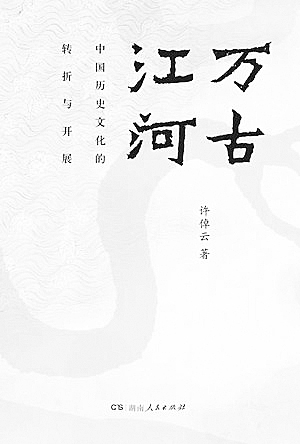 万古
江河
中国历史文化的
转折与开展
许倬云 著
CS 湖南人民出版社